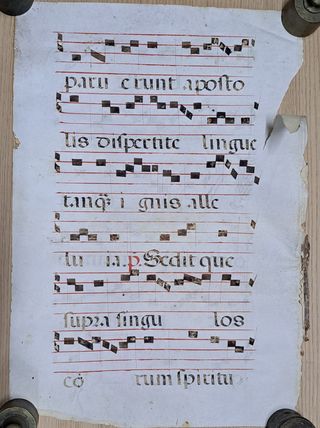 paru erunt aposto
lis dispertite lingue
tanq̃ i gnis alle
lu ia. p. Sedit que
supra singu los
cō rum spiritu